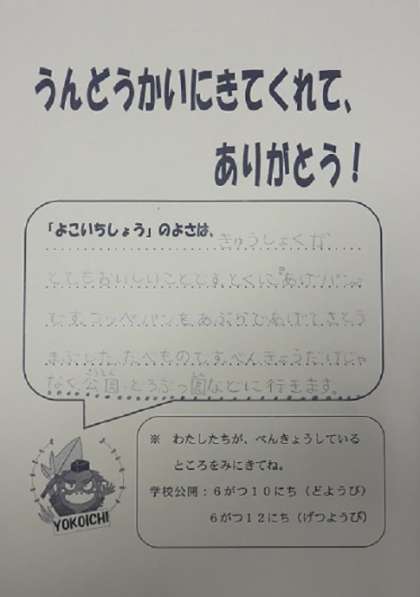 うんどうかいにきてくれて、
ありがとう！
「よこいちしょう」のよさは、きゅうしょくが
とてもおいしいことです。とくに『あげパン』
です。コッペパンをあぶらであげてさとう
まぶしたたべものです。べんきょうだけじゃ
なく公園とどうぶつ園などに行きます。
※ わたしたちが、べんきょうしている
ところをみにきてね。
学校公開：６がつ１０にち（どようび）
６がつ１２にち（げつようび）
YOKOICHI